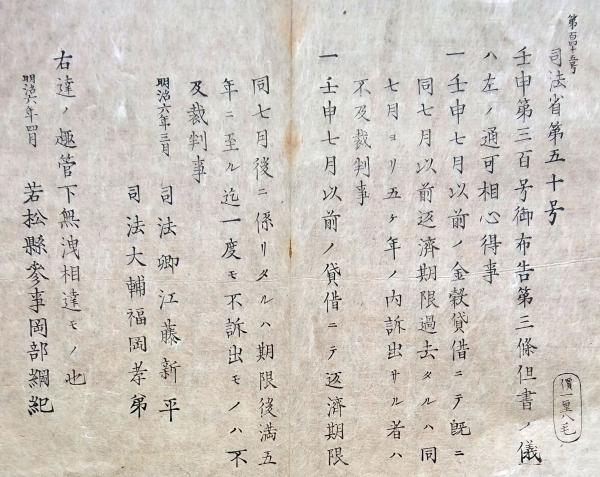 第百四十五号
司法省第五十号
壬申第三百号御布告第三條但書ノ儀
ハ左ノ通可相心得事
一 壬申七月以前ノ金穀貸借ニテ既ニ
同七月以前返濟期限過去タルハ同
七月ヨリ五ケ年ノ内訴出サル者ハ
不及裁判事
一 壬申七月以前ノ貸借ニテ返濟期限
同七月後ニ係リタルハ期限後満五
年ニ至ル迄一度モ不訴出モノハ不
及裁判事
明治六年三月 司法卿江藤新平
司法大輔福岡孝弟
右達ノ趣管下無洩相達モノ也
明治六年四月 若松縣参事岡部綱紀
價一厘八毛